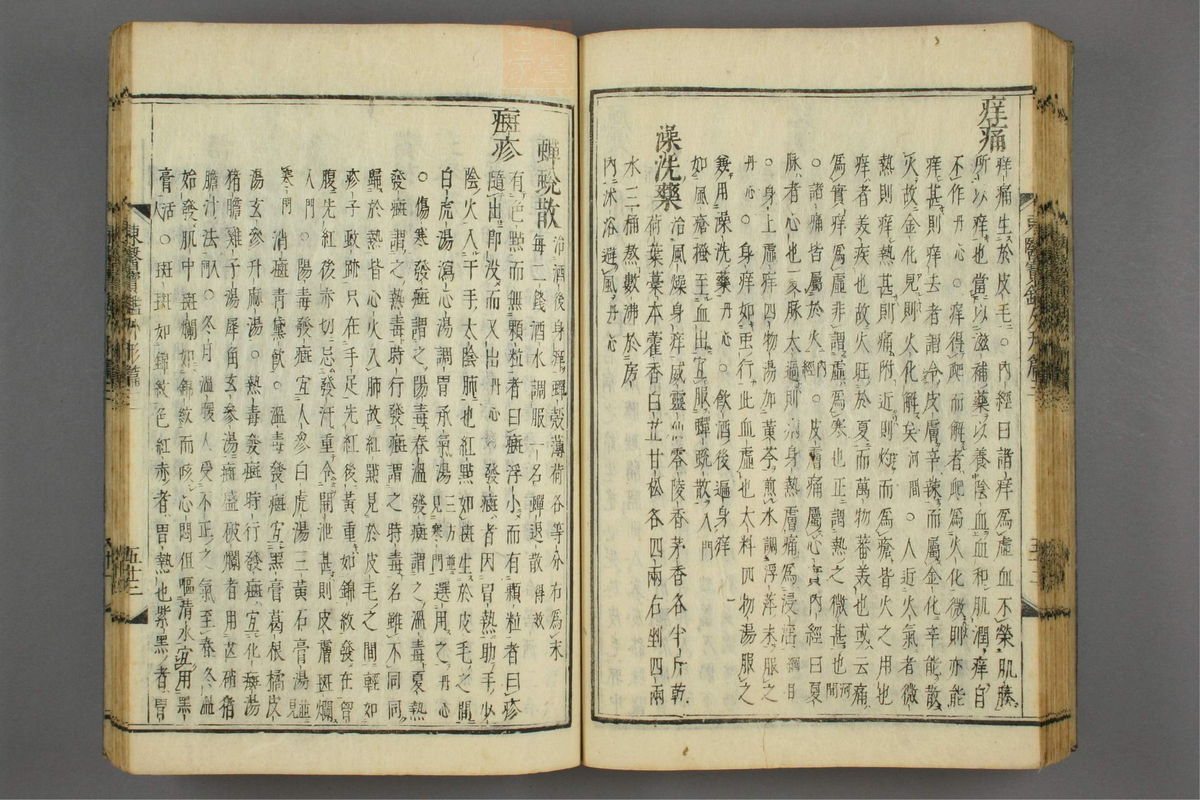 痒痛
痒痛生於皮毛○內經曰諸痒爲虛血不榮肌腠
所以痒也當以滋補藥以養陰血血和肌潤痒自
不作丹心○痒得爬而解者爬爲火化微則亦能
痒甚則痒去者謂令皮膚辛辣而屬金化辛能散
火故金化見則火化解矣河間○人近火氣者微
熱則痒熱甚則痛附近則灼而爲瘡皆火之用也
痒者美疾也故火旺於夏而萬物蕃美也或云痛
爲實痒爲虛非謂虛爲寒也正謂熱之微甚也河間
○諸痛皆屬於火內經○皮膚痛屬心實內經曰夏
脉者心也心脉太過則病身熱膚痛爲浸淫綱目
○身上虛痒四物湯加黃芩煎水調浮萍末服之
丹心○身痒如虫行此血虛也大料四物湯服之
兼用澡洗藥丹心○飮酒後遍身痒
如風瘡搔至血出宜服蟬蛻散入門
澡洗藥
治風燥身痒威靈仙零陵香茅香各半斤乾
荷葉藁本藿香白芷甘松各四兩右剉四兩
水二桶熬數沸於房
內沐浴避風丹心
蟬蛻散
治酒後身痒蟬殼薄荷各等分右爲末
每二錢酒水調服一名蟬退散得效
癍疹
有色點而無顆粒者曰癍浮小而有顆粒者曰疹
隨出卽沒而又出丹心○發癍者因冒熱助手少
陰火入于手太陰肺也紅點如斑生於皮毛之間
白虎湯瀉心湯調胃承氣湯三方並見寒門選用之丹心
○傷寒發癍謂之陽毒春溫發癍謂之溫毒夏熱
發癍謂之熱毒時行發癍謂之時毒名雖不同同
歸於熱皆心火入肺故紅點見於皮毛之間輕如
疹子蚊跡只在手足先紅後黃重如錦紋發在胷
腹先紅後赤切忌發汗重令開泄甚則皮膚斑爛
入門○陽毒發癍宜人參白虎湯三黃石膏湯並見
寒門消癍靑黛飮○溫毒發癍宜黑膏葛根橘皮
湯玄參升麻湯○熱毒發癍時行發癍宜化癍湯
猪膽雞子湯犀角玄參湯癍盛破爛者用芒硝猪
膽汁法入門○冬月溫暖人受不正之氣至春冬溫
始發肌中斑爛如錦紋而咳心悶但嘔淸水宜用黑
膏活人○斑斑如錦紋色紅赤者胃熱也紫黑者胃
東醫寶鑑外形篇